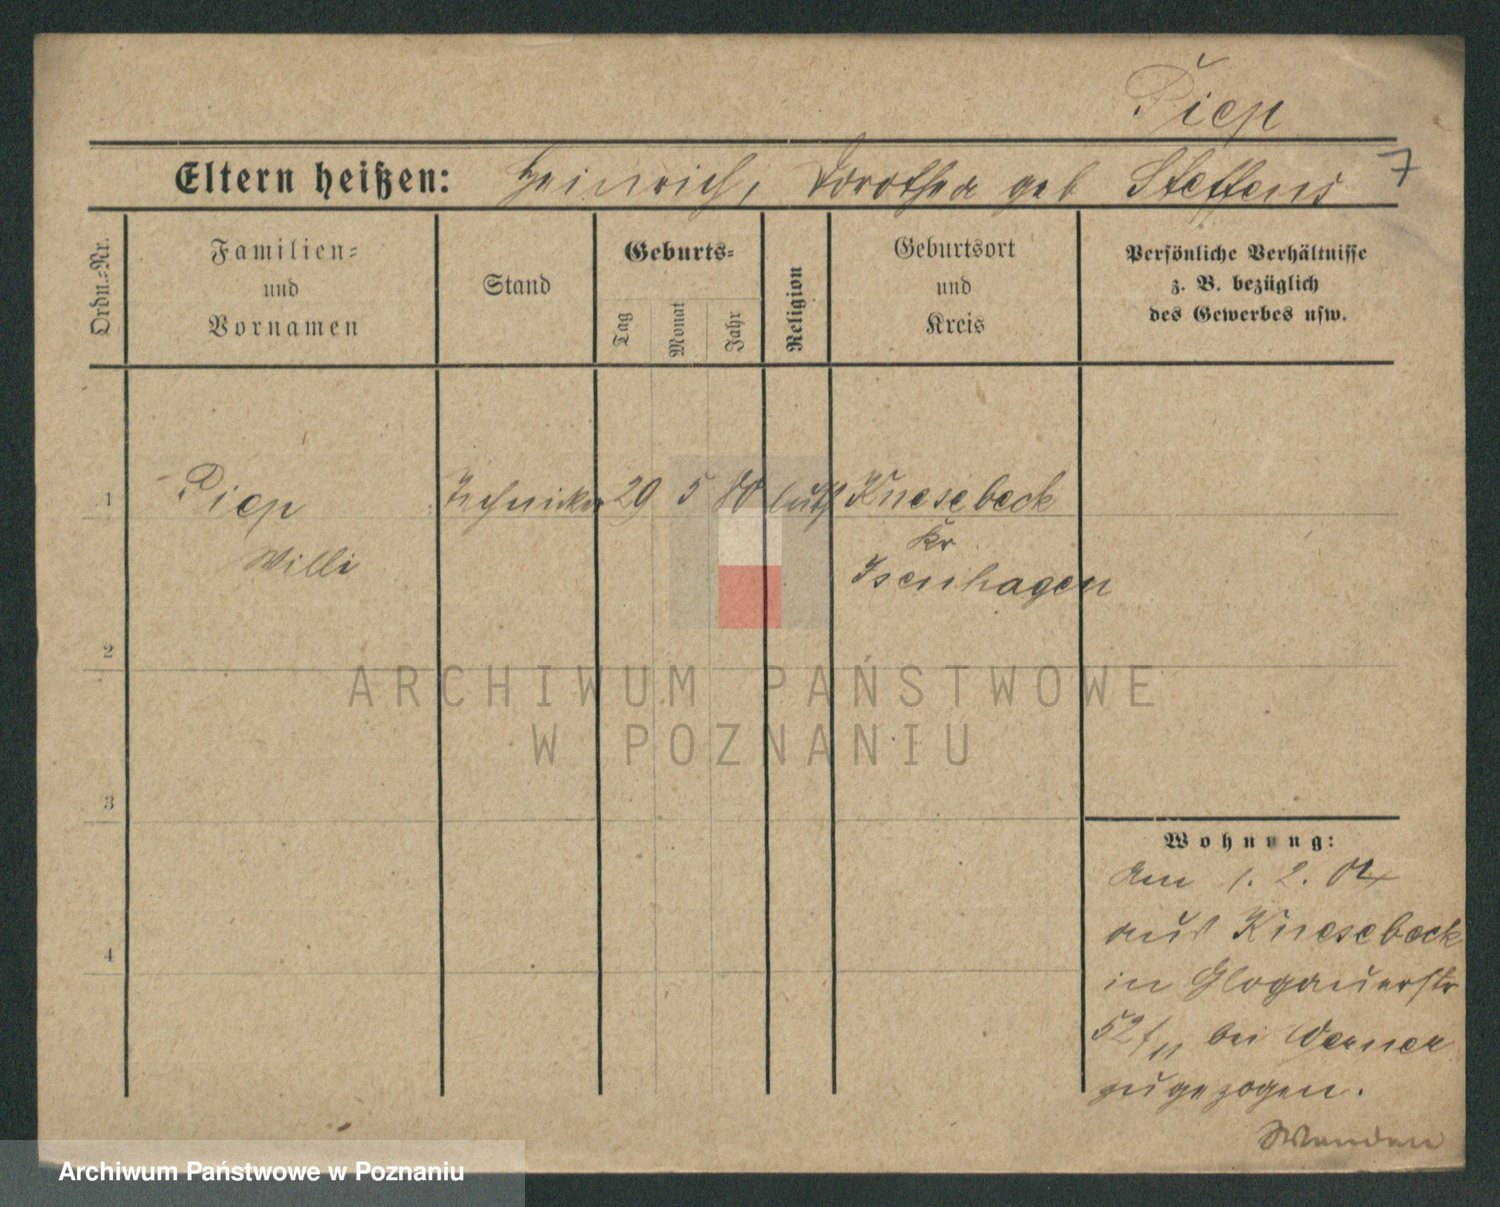 Piep
Eltern heißen: Heinrich, Dorothea geb Steffens
7
Ordn.-Nr.
Familien=
und
Vornamen
Stand
Geburts=
Tag
Monat
Jahr
Religion
Geburtsort
und
Kreis
Persönliche Verhältnisse
z. B. bezüglich
des Gewerbes usw.
1 Piep Techniker 29 5 80 luth Knesebeck
Willi
Kr
Isenhagen
2
ARCHIWUM PAŃSTWOWE
W POZNANIU
3
Wohnung:
Am 1. 2. 04
aus Knesebeck
in Glogauerstr
4
52/II bei Werner
zugezogen.
Archiwum Państwowe w Poznaniu